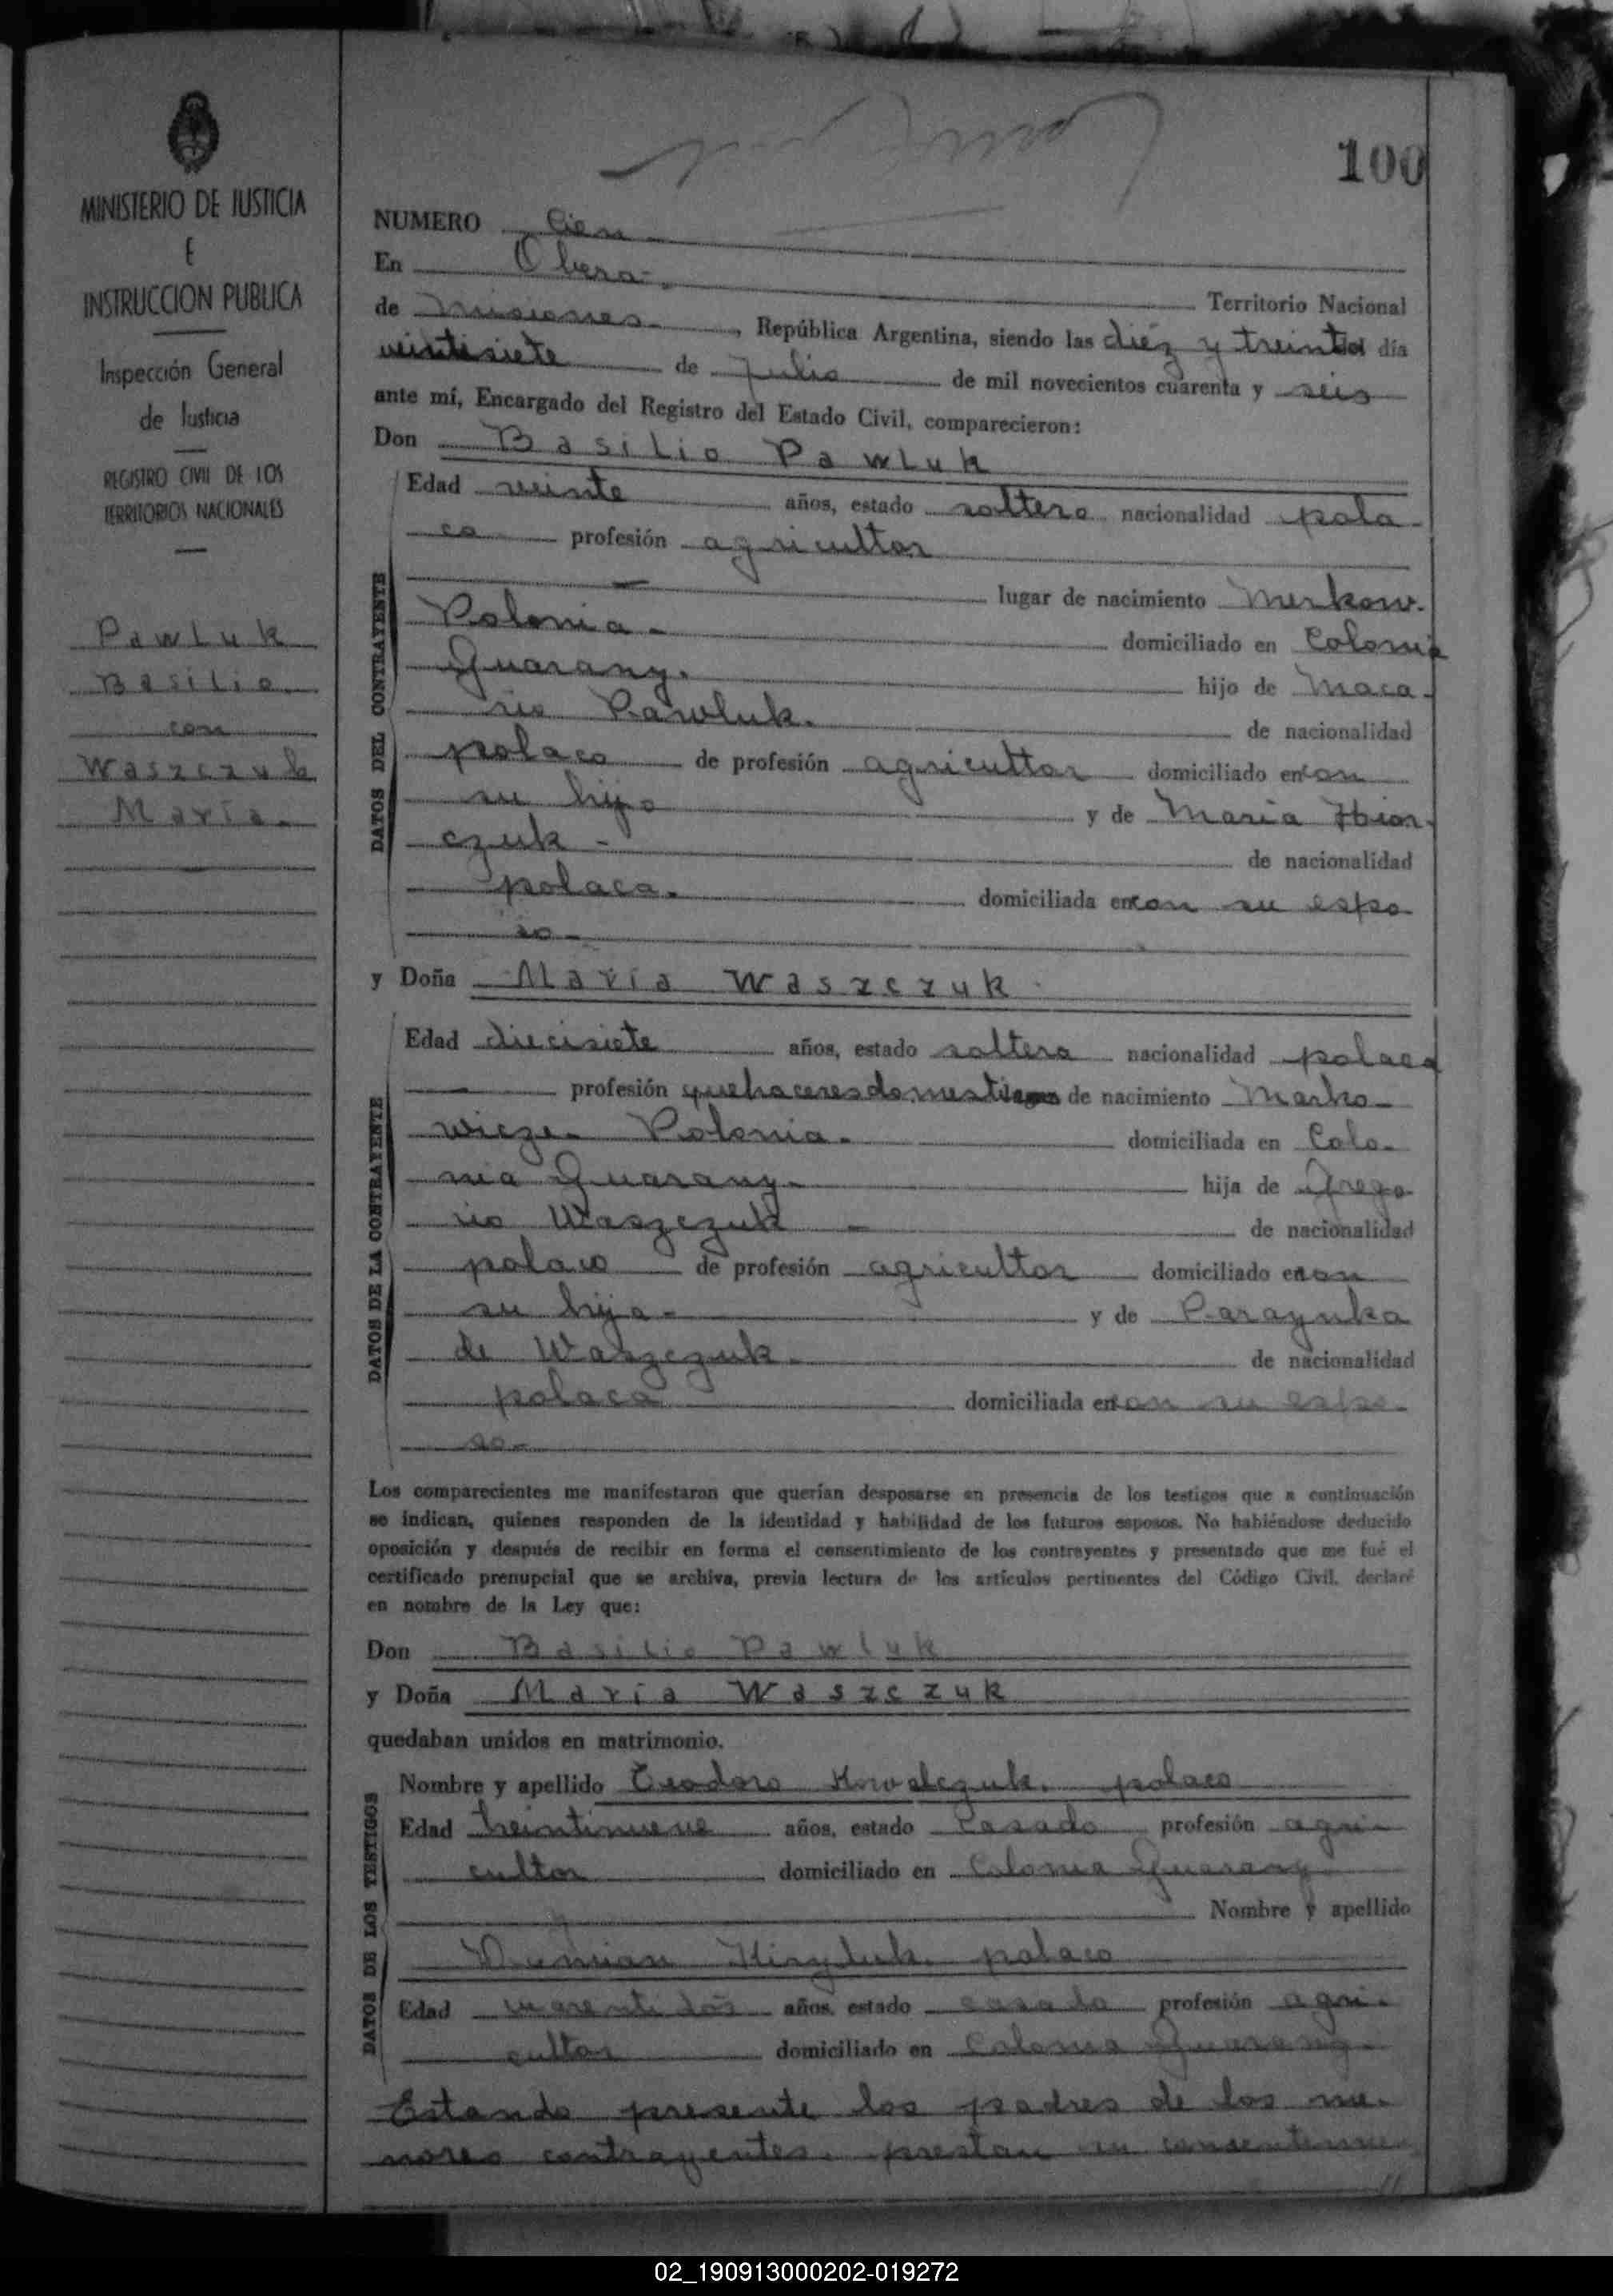 100
MINISTERIO DE JUSTICIA
E
INSTRUCCION PUBLICA
Inspección General
de Justicia
REGISTRO CIVIL DE LOS
TERRITORIOS NACIONALES
Pawluk
Basilio
con
Waszczuk
María.
NUMERO Cien
En Obera.
Territorio Nacional
de Misiones. , República Argentina, siendo las diéz y treinta del día
veintisiete de Julio de mil novecientos cuarenta y seis
ante mí, Encargado del Registro del Estado Civil, comparecieron:
Don Basilio Pawluk
DATOS DEL CONTRAYENTE
Edad veinte años, estado soltero nacionalidad pola-
co profesión agricultor
lugar de nacimiento Merkow.
Polonia - domiciliado en Colonia
Guarany. hijo de Maca-
rio Pawluk. de nacionalidad
polaco de profesión agricultor domiciliado en con
su hijo y de Maria
czuk - de nacionalidad
polaca. domiciliada en con su espo
so -
y Doña María Waszczuk
DATOS DE LA CONTRAYENTE
Edad diecisiete años, estado soltera nacionalidad polaca
profesión quehaceres domesticos de nacimiento Marko-
wicze. Polonia. domiciliada en Colo-
nia Guarany. hija de Grego-
rio Waszczuk - de nacionalidad
polaco de profesión agricultor domiciliado en con
su hija. y de
de Waszczuk. de nacionalidad
polaca domiciliada en con su espo-
so-
Los comparecientes me manifestaron que querían desposarse en presencia de los testigos que a continuación
se indican, quienes responden de la identidad y habilidad de los futuros esposos. No habiéndose deducido
oposición y después de recibir en forma el consentimiento de los contrayentes y presentado que me fué el
certificado prenupcial que se archiva, previa lectura de los artículos pertinentes del Código Civil, declaré
en nombre de la Ley que:
Don Basilio Pawluk
y Doña María Waszczuk
quedaban unidos en matrimonio.
DATOS DE LOS TESTIGOS
Nombre y apellido Teodoro Kowalczuk. polaco
Edad treintinueve años, estado casado profesión agri-
cultor domiciliado en Colonia Guarany
Nombre y apellido
Damian Kiryluk. polaco
Edad cuarentidos años, estado casado profesión agri-
cultor domiciliado en Colonia Guarany.
Estando presente los padres de los me-
nores contrayentes. prestan su consentimie
02_190913000202-019272